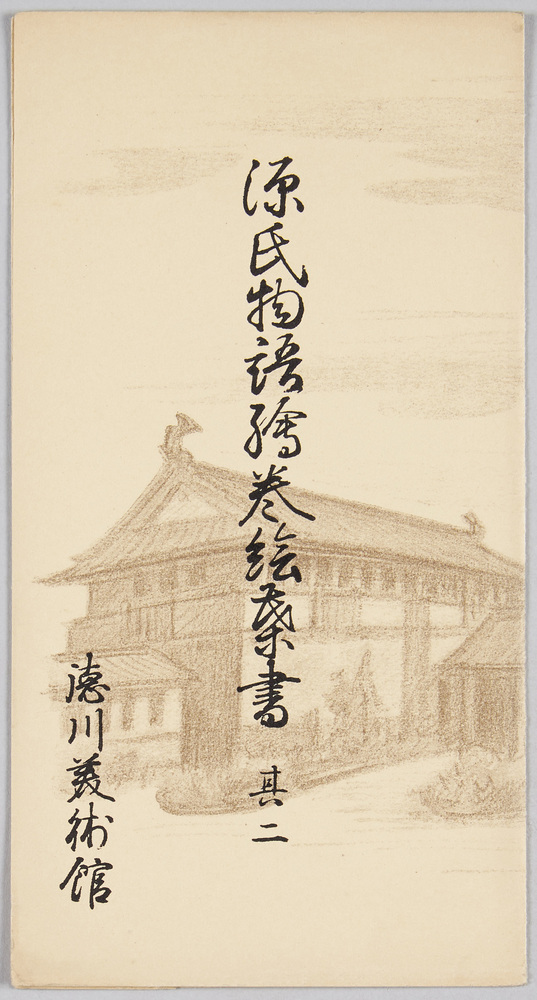 源氏物語繪巻絵葉書 其二
徳川美術館